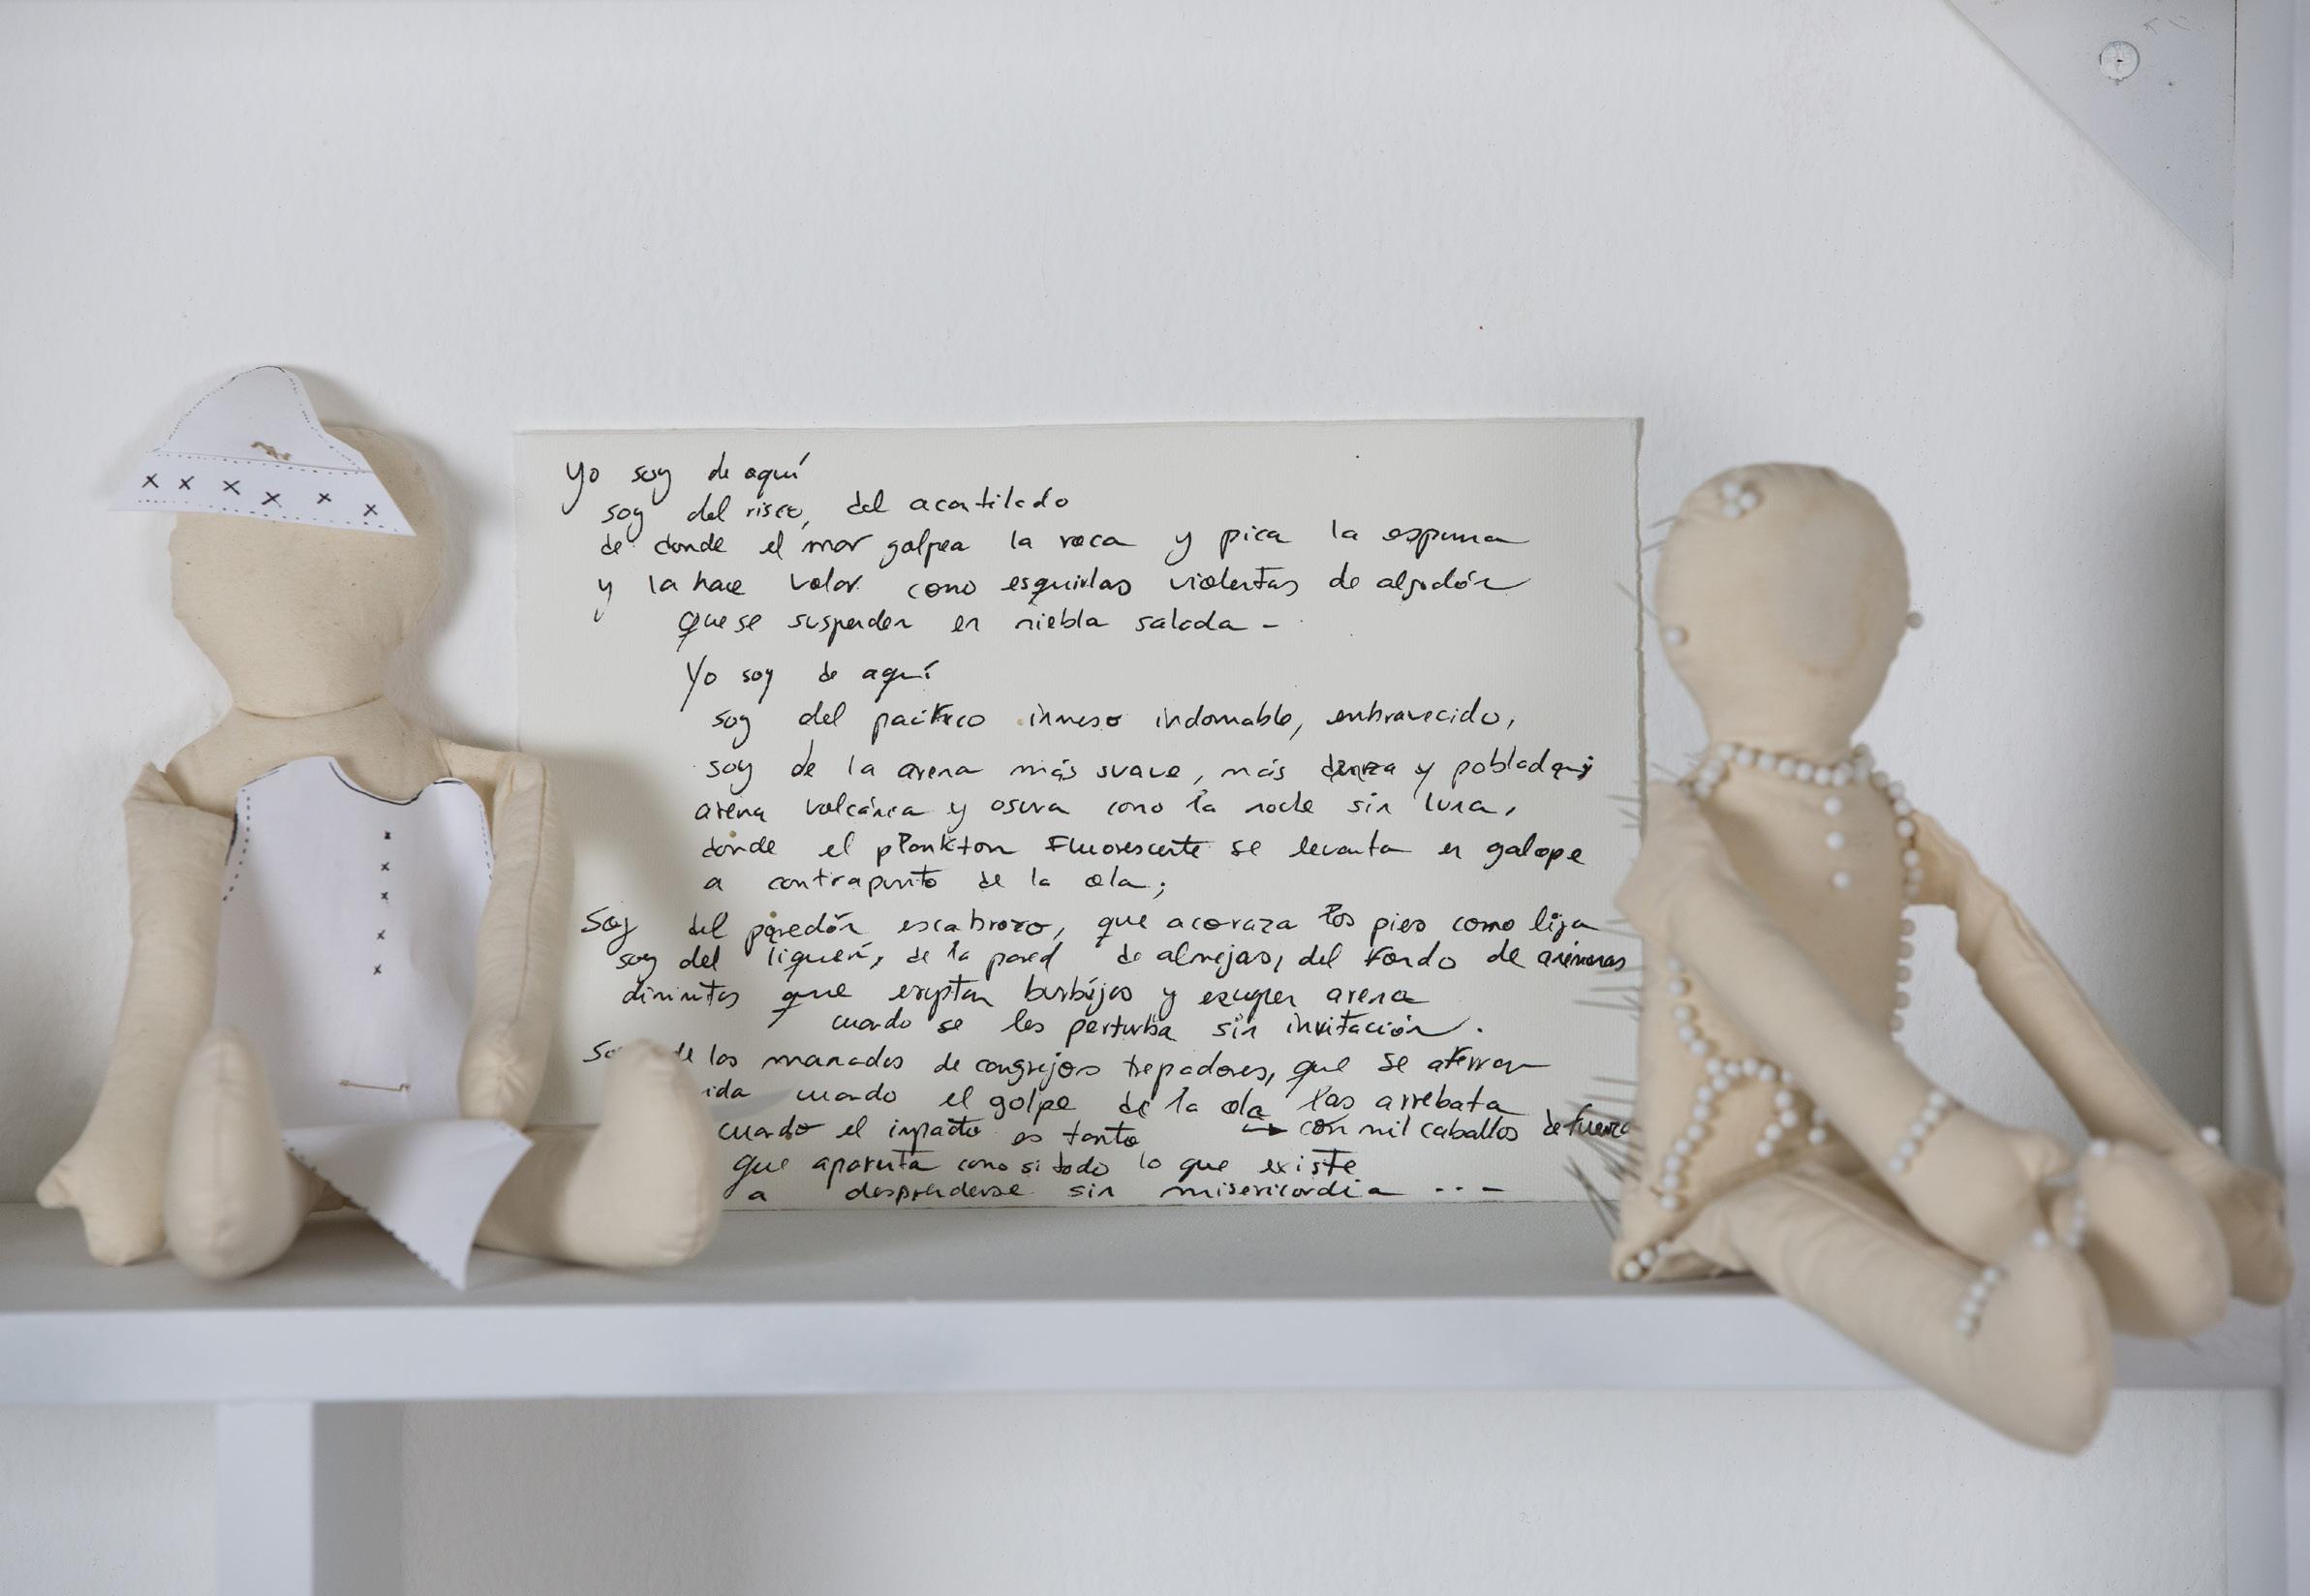 Yo soy de aquí
soy del risco, del acantilado
de donde el mar golpea la roca y pica la espuma
y la hace volar como esquirlas violentas de algodón
que se suspenden en niebla salada -
Yo soy de aquí
soy del pacífico inmeso indomable, embravecido,
soy de la arena más suave, más densa y poblada
arena volcánica y oscura como la noche sin luna,
donde el plankton fluorescente se levanta en galope
a contrapunto de la ola;
Soy del paredón escabrozo, que acoraza los pies como lija
soy del liquen, de la pared de almejas, del fondo de
diminutas que eruptan burbujas y escupen arena
cuando se les perturba sin invitación.
de las manadas de cangrejos trepadores, que se aferran
cuando el golpe de la ola las arrebata
cuando el impacto es tanto → con mil caballos de fuerza
que aparenta como si todo lo que existe
a desprenderse sin misericordia ---